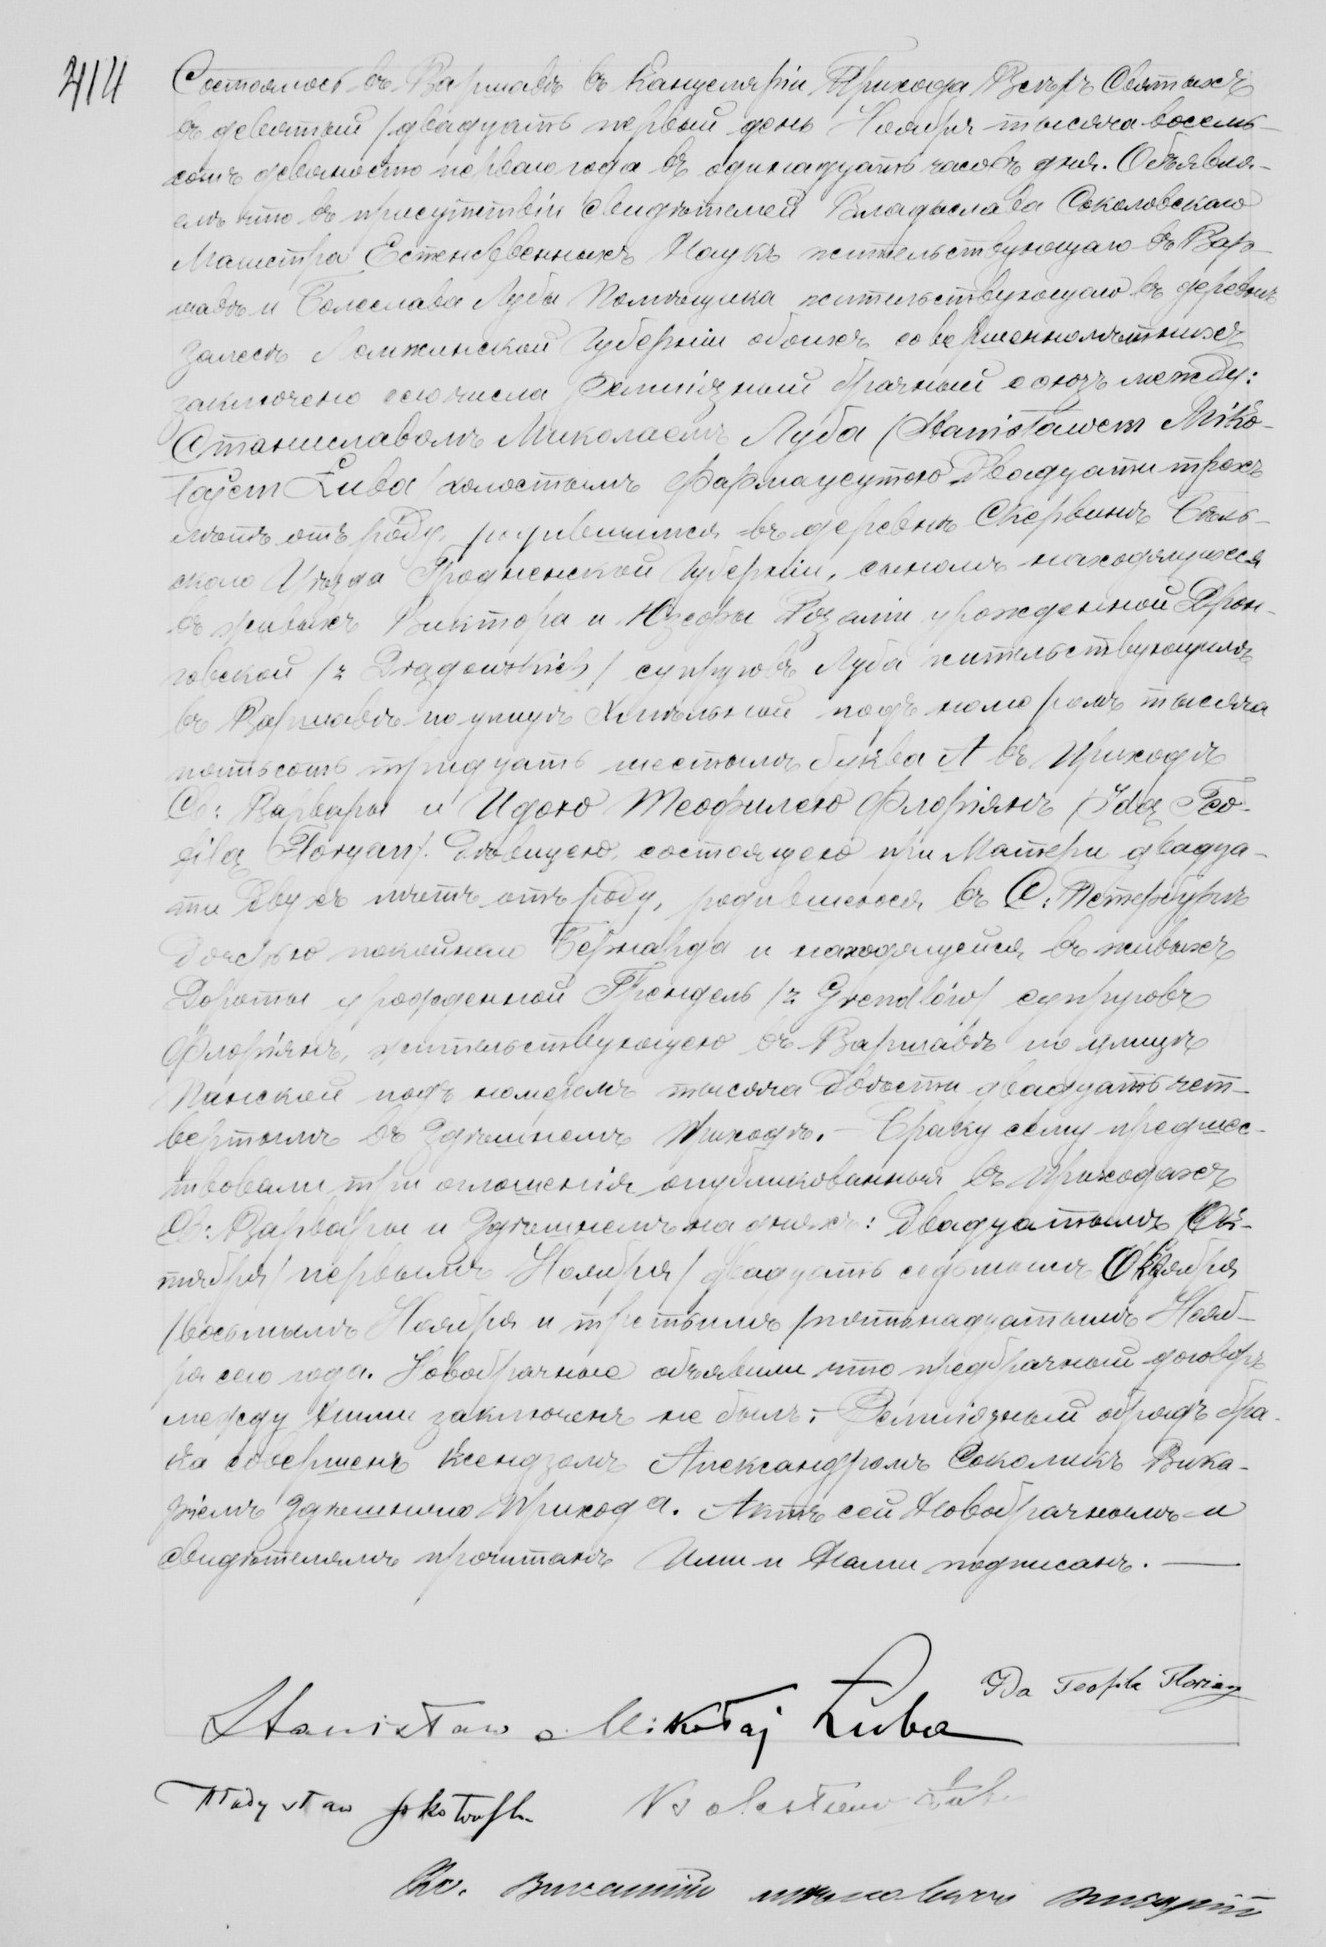 414
Состоялось въ Варшавѣ въ Канцеляріи Прихода Всѣхъ Святыхъ
въ девятый /двадцать первый день Ноября тысяча восемь-
сотъ девяносто перваго года въ одинадцать часовъ дня. Объявля-
емъ что въ присутствіи свидѣтелей Владыслава Соколовскаго
Магистра Естественныхъ Наукъ жительствующаго въ Вар-
шавѣ и Болеслава Луба Помѣщика жительствующаго въ деревнѣ
Залесѣ Ломжинской Губерніи обоихъ совершеннолѣтнихъ
заключено сего числа Религіозный брачный союзъ между:
Станиславомъ Миколаемъ Луба (Stanisławem Miko-
łajem Łuba/ холостымъ Фармацеутою двадцати трехъ
лѣтъ отъ роду, родившимся въ деревнѣ Скервинъ Бѣль-
скаго Уѣзда Гродненской Губерніи, сыномъ находящихся
въ живыхъ Виктора и Юзефы Розаліи урожденной Дрон-
говской /z Drągowskich/ супруговъ Луба жительствующимъ
въ Варшавѣ по улицѣ Хмѣльной подъ номеромъ тысяча
пятьсотъ тридцать шестымъ буква А въ Приходѣ
Св: Варвары и Идою Теофилею Флоріянъ (Idą Teo-
filą Floryan/. Дѣвицею, состоящею при Матери двадца-
ти двухъ лѣтъ отъ роду, родившеюся въ С: Петербургѣ
дочерью покойнаго Бернарда и находящейся въ живыхъ
Дороты урожденной Грендель /z Grendlów/ супруговъ
Флоріянъ, жительствующею въ Варшавѣ по улицѣ
Панской подъ номеромъ тысяча двѣсти двадцать чет-
вертымъ въ здѣшнемъ Приходѣ. — Браку сему предшес-
твовали три оглашенія опубликованныя въ Приходахъ
Св: Варвары и Здѣшнемъ на дняхъ: Двадцатымъ Ок-
тября/ первымъ Ноября/ двадцать седьмымъ Октября
/восьмымъ Ноября и третьимъ /пятьнадцатымъ Нояб-
ря сего года. Новобрачные объявили что предбрачный договоръ
между ними заключенъ не былъ: — Религіозный обрядъ бра-
ка совершенъ Ксендзомъ Александромъ Соколикъ Вика-
ріемъ здѣшняго Прихода. Актъ сей Новобрачнымъ и
свидѣтелямъ прочитанъ Ими и Нами подписанъ. —
Ida Teofila Florian
Stanisław Mikołaj Łuba
Władysław Sokołowski Bolesław Łuba
Кс. Викарій